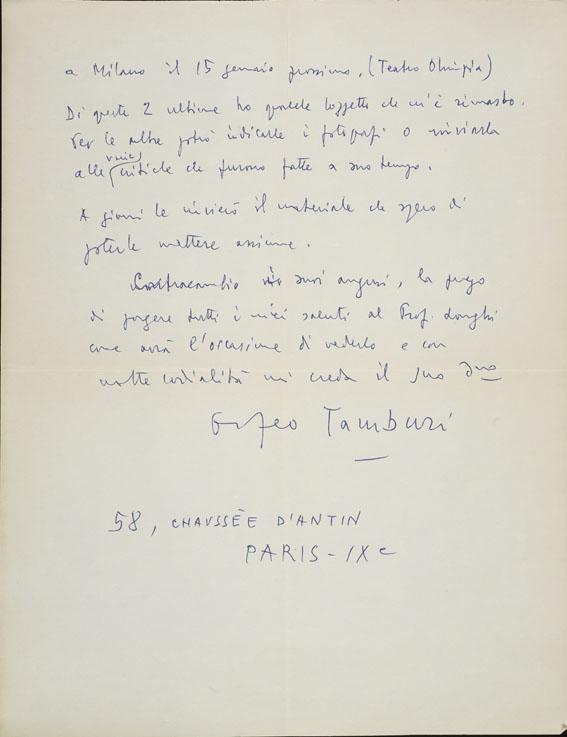 a Milano il 15 gennaio prossimo. (Teatro Olimpia)
Di queste 2 ultime ho qualche che m'è rimasto.
Per le altre potrò indicarle i fotografi o inviarla
alle varie critiche che furono fatte a suo tempo.
A giorni le invierò il materiale che spero di
poterle mettere assieme.
Contraccambio suoi auguri, la prego
di porgere tutti i miei saluti al Prof. Longhi
come avrà l'occasione di vederlo e con
molta cordialità mi creda il suo
Orfeo Tamburi
58, CHAUSSÉE D'ANTIN
PARIS - IXe